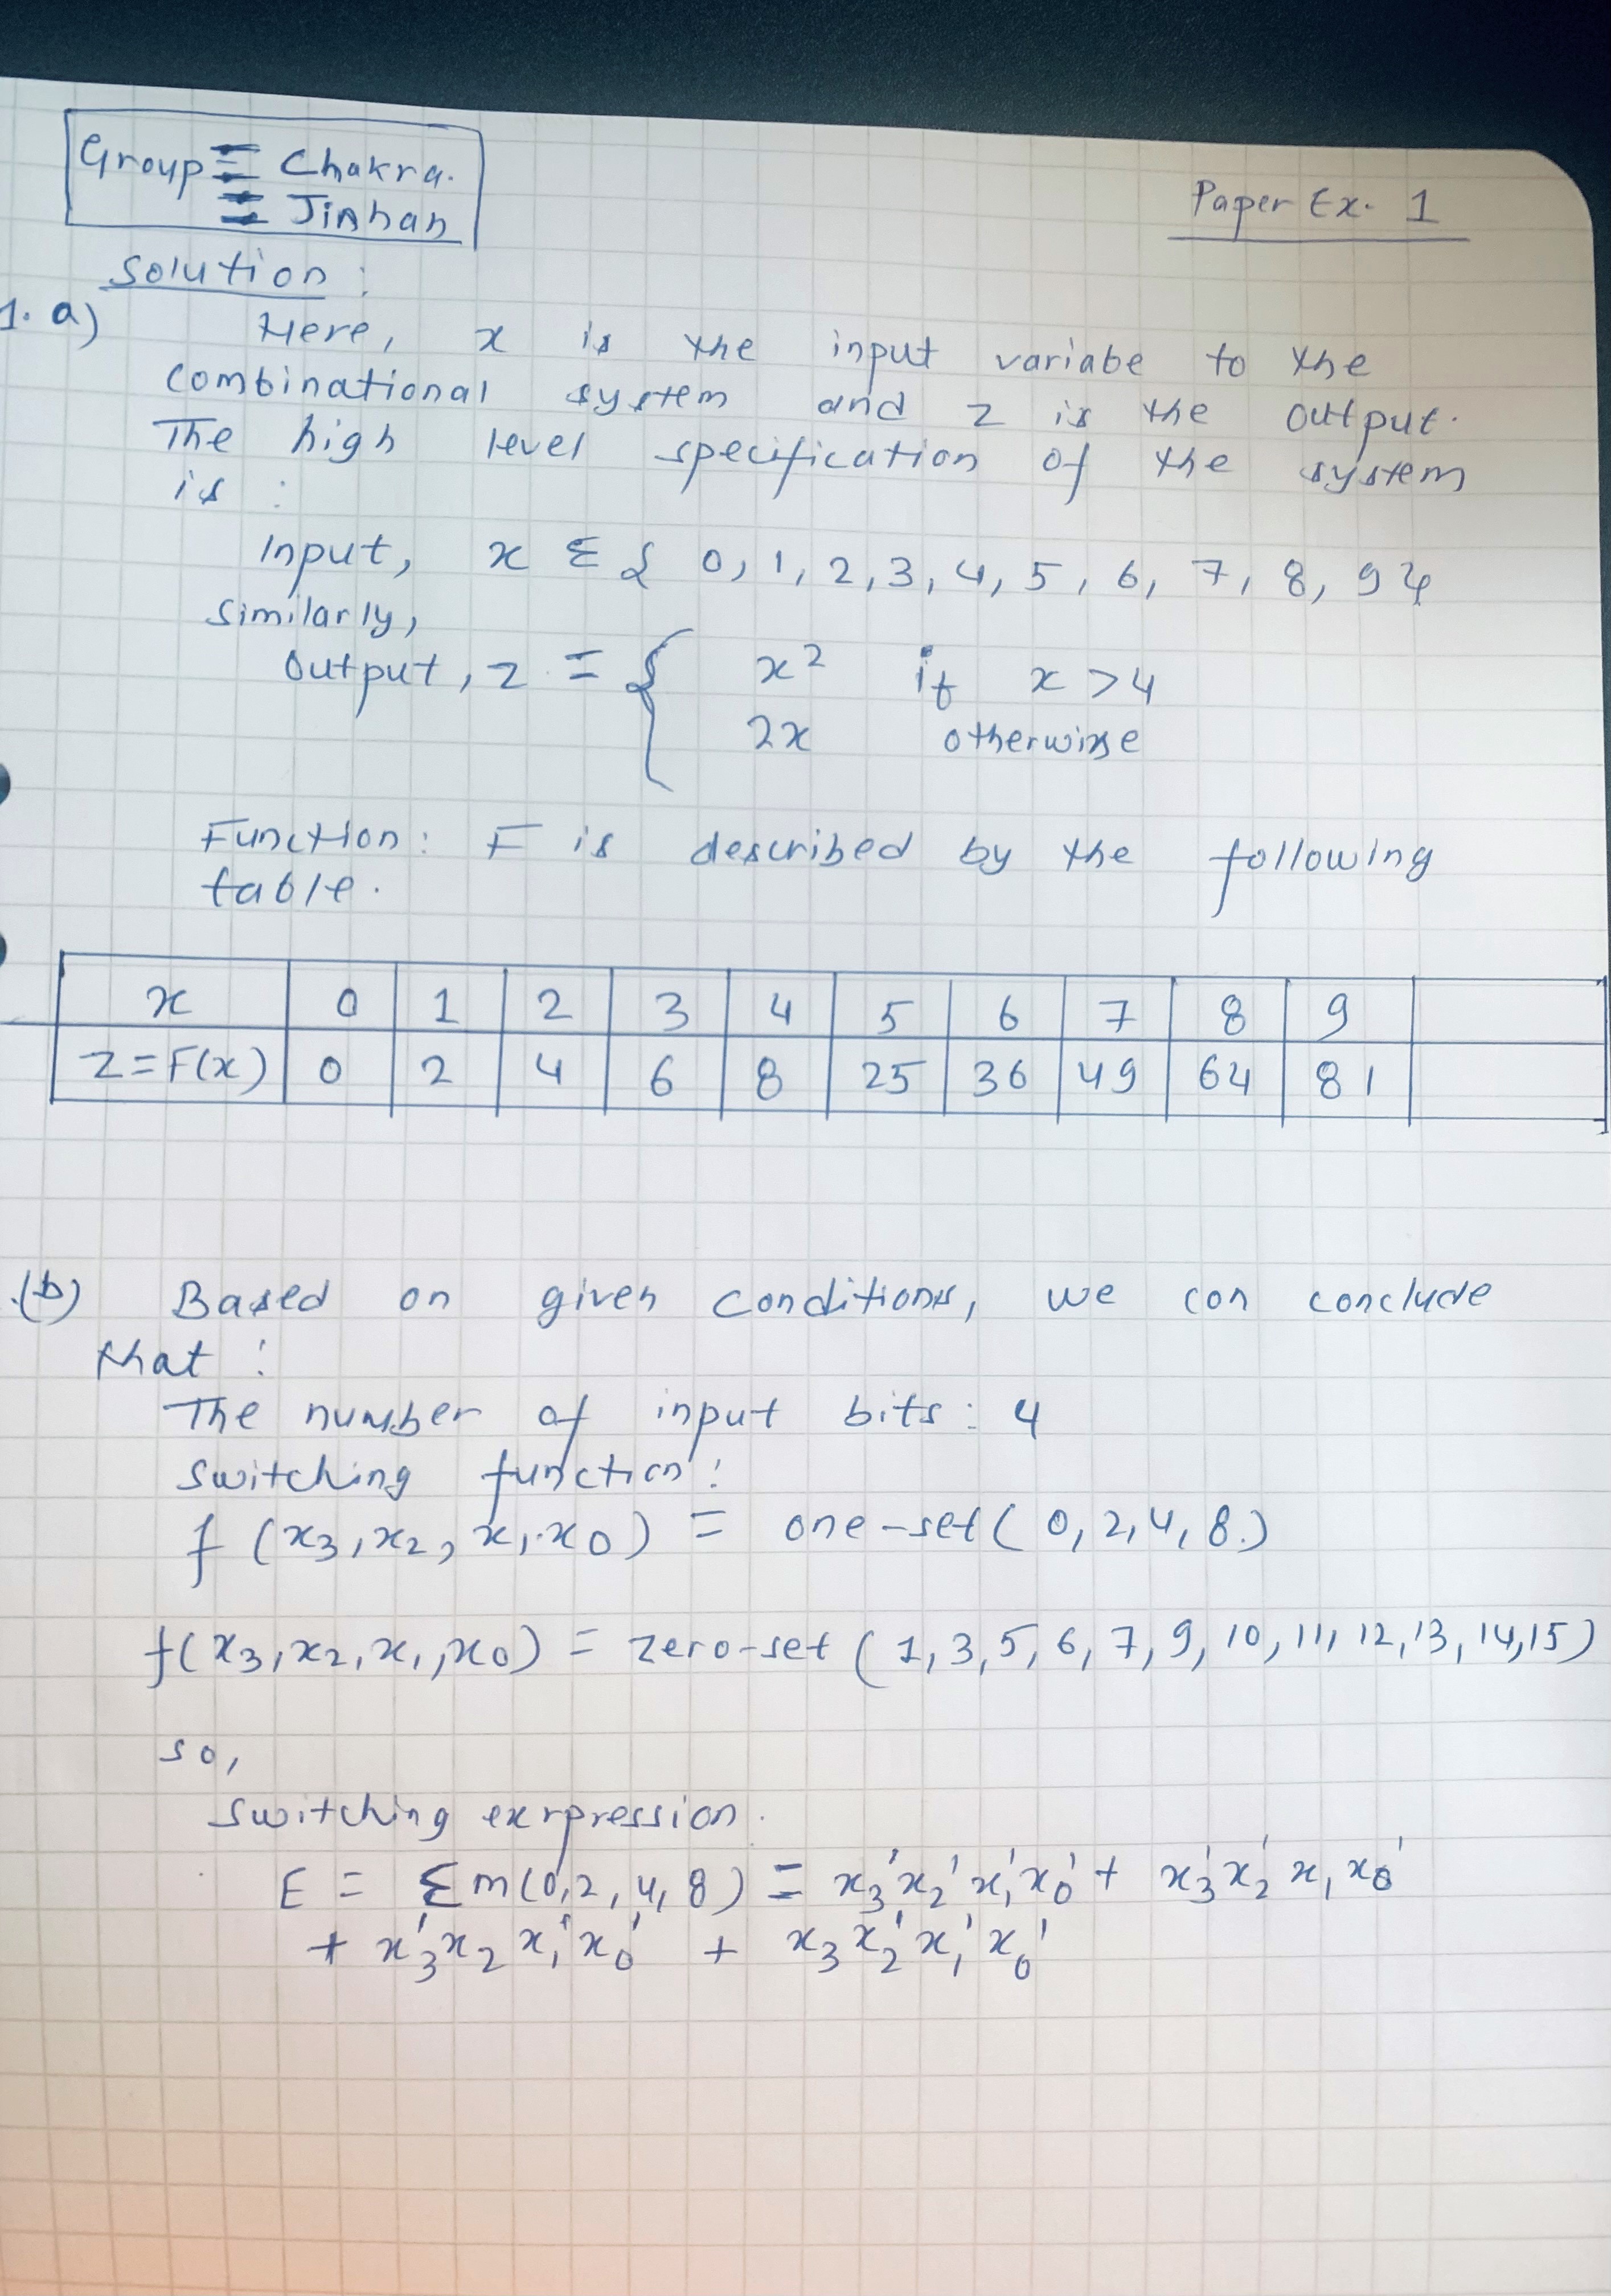 Group Chakra.
Jinhan
Paper Ex. 1
Solution:
1. a) Here, x is the input variabe to the
combinational system and z is the output.
The high level specification of the system
is :
Input, x ∈ { 0, 1, 2, 3, 4, 5, 6, 7, 8, 9 }
Similarly,
Output, z = { x² if x > 4
2x otherwise
Function: F is described by the following
table.
x 0 1 2 3 4 5 6 7 8 9
z = F(x) 0 2 4 6 8 25 36 49 64 81
(b) Based on given conditions, we con conclude
that :
The number of input bits : 4
Switching function:
f (x₃, x₂, x₁, x₀) = one-set ( 0, 2, 4, 8.)
f(x₃, x₂, x₁, x₀) = zero-set ( 1, 3, 5, 6, 7, 9, 10, 11, 12, 13, 14, 15)
so,
Switching exrpression.
E = Σ m (0, 2, 4, 8) = x₃' x₂' x₁' x₀' + x₃' x₂' x₁ x₀'
+ x₃' x₂ x₁' x₀' + x₃ x₂' x₁' x₀'